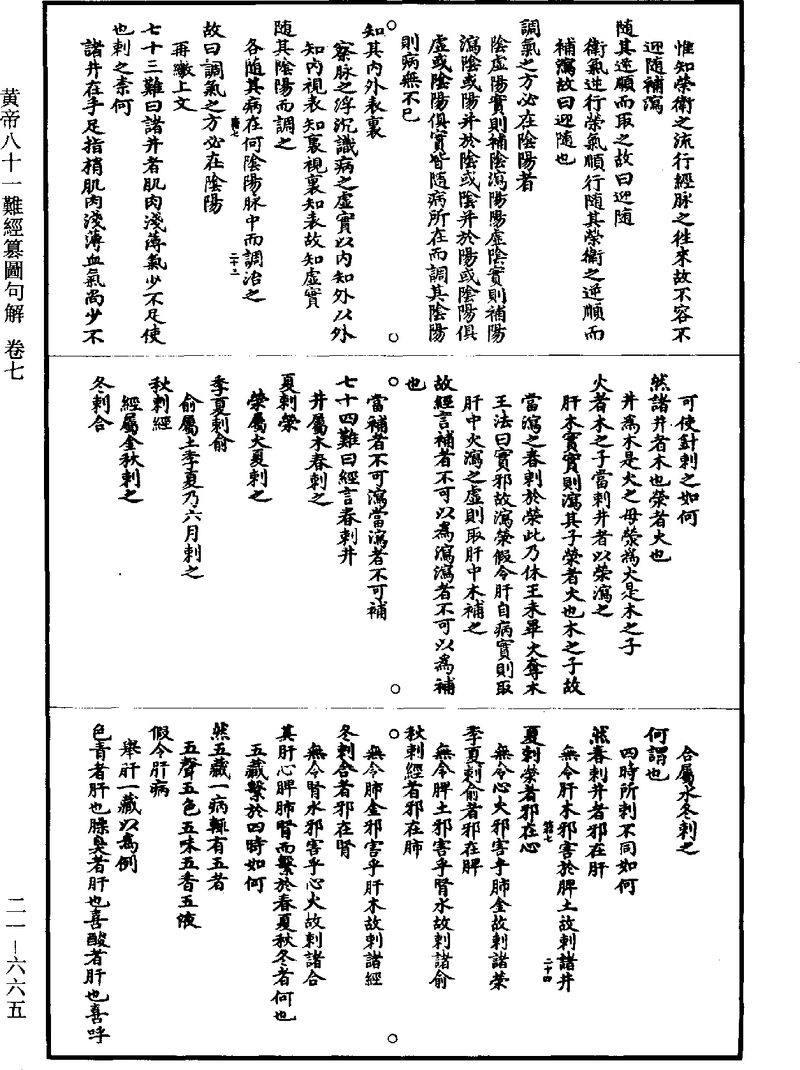 惟知榮衛之流行經脉之徃來故不容不
迎隨補瀉
隨其逆順而取之故曰迎隨
衛氣逆行榮氣順行隨其榮衛之逆順而
補瀉故曰迎隨也
調氣之方必在陰陽者
陰虛陽實則補陰瀉陽陽虛陰實則補陽
瀉陰或陽并於陰或陰并於陽或陰陽俱
虛或陰陽俱實皆隨病所在而調其陰陽
則病無不已
知其內外表裏
察脉之浮沉識病之虛實以內知外以外
知內視表知裏視裏知表故知虛實
隨其陰陽而調之
各隨其病在何陰陽脉中而調治之
難七
二十三
故曰調氣之方必在陰陽
再曒上文
七十三難曰諸井者肌肉淺薄氣少不足使
也刺之柰何
諸井在手足指梢肌肉淺薄血氣尚少不
可使針刺之如何
然諸井者木也榮者火也
井為木是火之母滎為火是木之子
火者木之子當刺井者以榮瀉之
肝木實實則瀉其子榮者火也木之子故
當瀉之春刺於榮此乃休王未畢火奪木
王法曰實邪故瀉榮假令肝自病實則取
肝中火瀉之虛則取肝中木補之
故經言補者不可以為瀉瀉者不可以為補
也
當補者不可瀉當瀉者不可補
七十四難曰經言春刺井
井屬木春刺之
夏刺榮
榮屬火夏刺之
季夏刺俞
俞屬土季夏乃六月刺之
秋刺經
經屬金秋刺之
冬刺合
合屬水冬刺之
何謂也
四時所刺不同如何
然春刺井者邪在肝
無令肝木邪害於脾土故刺諸井
難七
二十四
夏刺榮者邪在心
無令心火邪害乎肺金故刺諸榮
季夏刺俞者邪在脾
無令脾土邪害乎腎水故刺諸俞
秋刺經者邪在肺
無令肺金邪害乎肝木故刺諸經
冬刺合者邪在腎
無令腎水邪害乎心火故刺諸合
其肝心脾肺腎而繫於春夏秋冬者何也
五藏繫於四時如何
然五藏一病輒有五者
五聲五色五味五香五液
假令肝病
舉肝一藏以為例
色青者肝也臊臭者肝也喜酸者肝也喜呼
黃帝八十一難經纂圖句解 卷七
二一—六六五